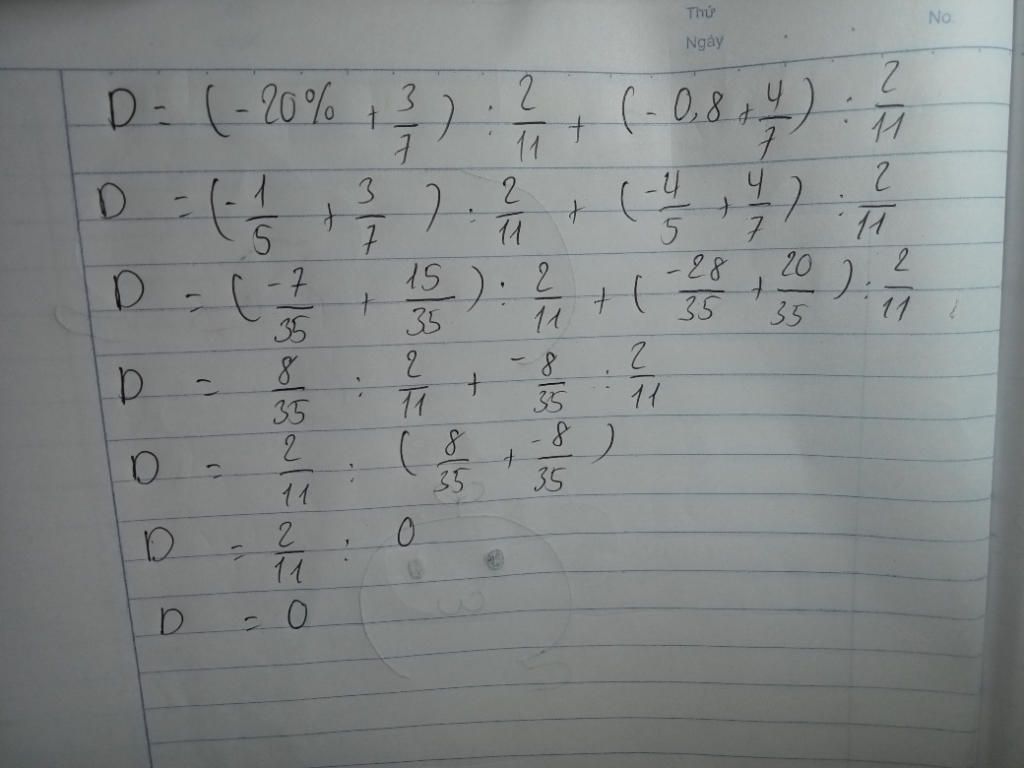 Thứ
No.
Ngày
D = (-20% + 3/7) : 2/11 + (-0,8 + 4/7) : 2/11
D = (-1/5 + 3/7) : 2/11 + (-4/5 + 4/7) : 2/11
D = (-7/35 + 15/35) : 2/11 + (-28/35 + 20/35) : 2/11
D = 8/35 : 2/11 + -8/35 : 2/11
D = 2/11 : (8/35 + -8/35)
D = 2/11 : 0
D = 0